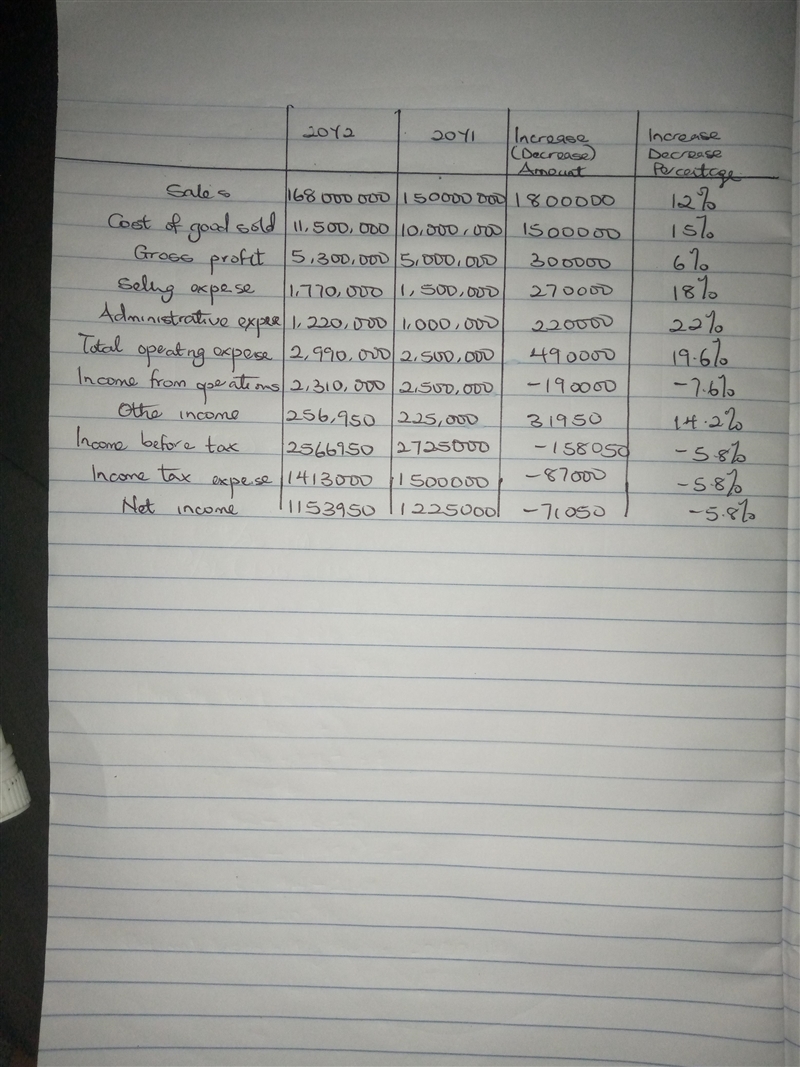 20Y2 20Y1 Increase (Decrease) Amount Increase Decrease Percentage
Sales 168000000 150000000 1800000 12%
Cost of good sold 11,500,000 10,000,000 1500000 15%
Gross profit 5,300,000 5,000,000 300000 6%
Selling expese 1,770,000 1,500,000 270000 18%
Administrative expee 1,220,000 1,000,000 220000 22%
Total operatng expese 2,990,000 2,500,000 490000 19.6%
Income from operations 2,310,000 2,500,000 -190000 -7.6%
Othe income 256,950 225,000 31950 14.2%
Income before tax 2566950 2725000 -158050 -5.8%
Income tax expese 1413000 1500000 -87000 -5.8%
Net income 1153950 1225000 -71050 -5.8%